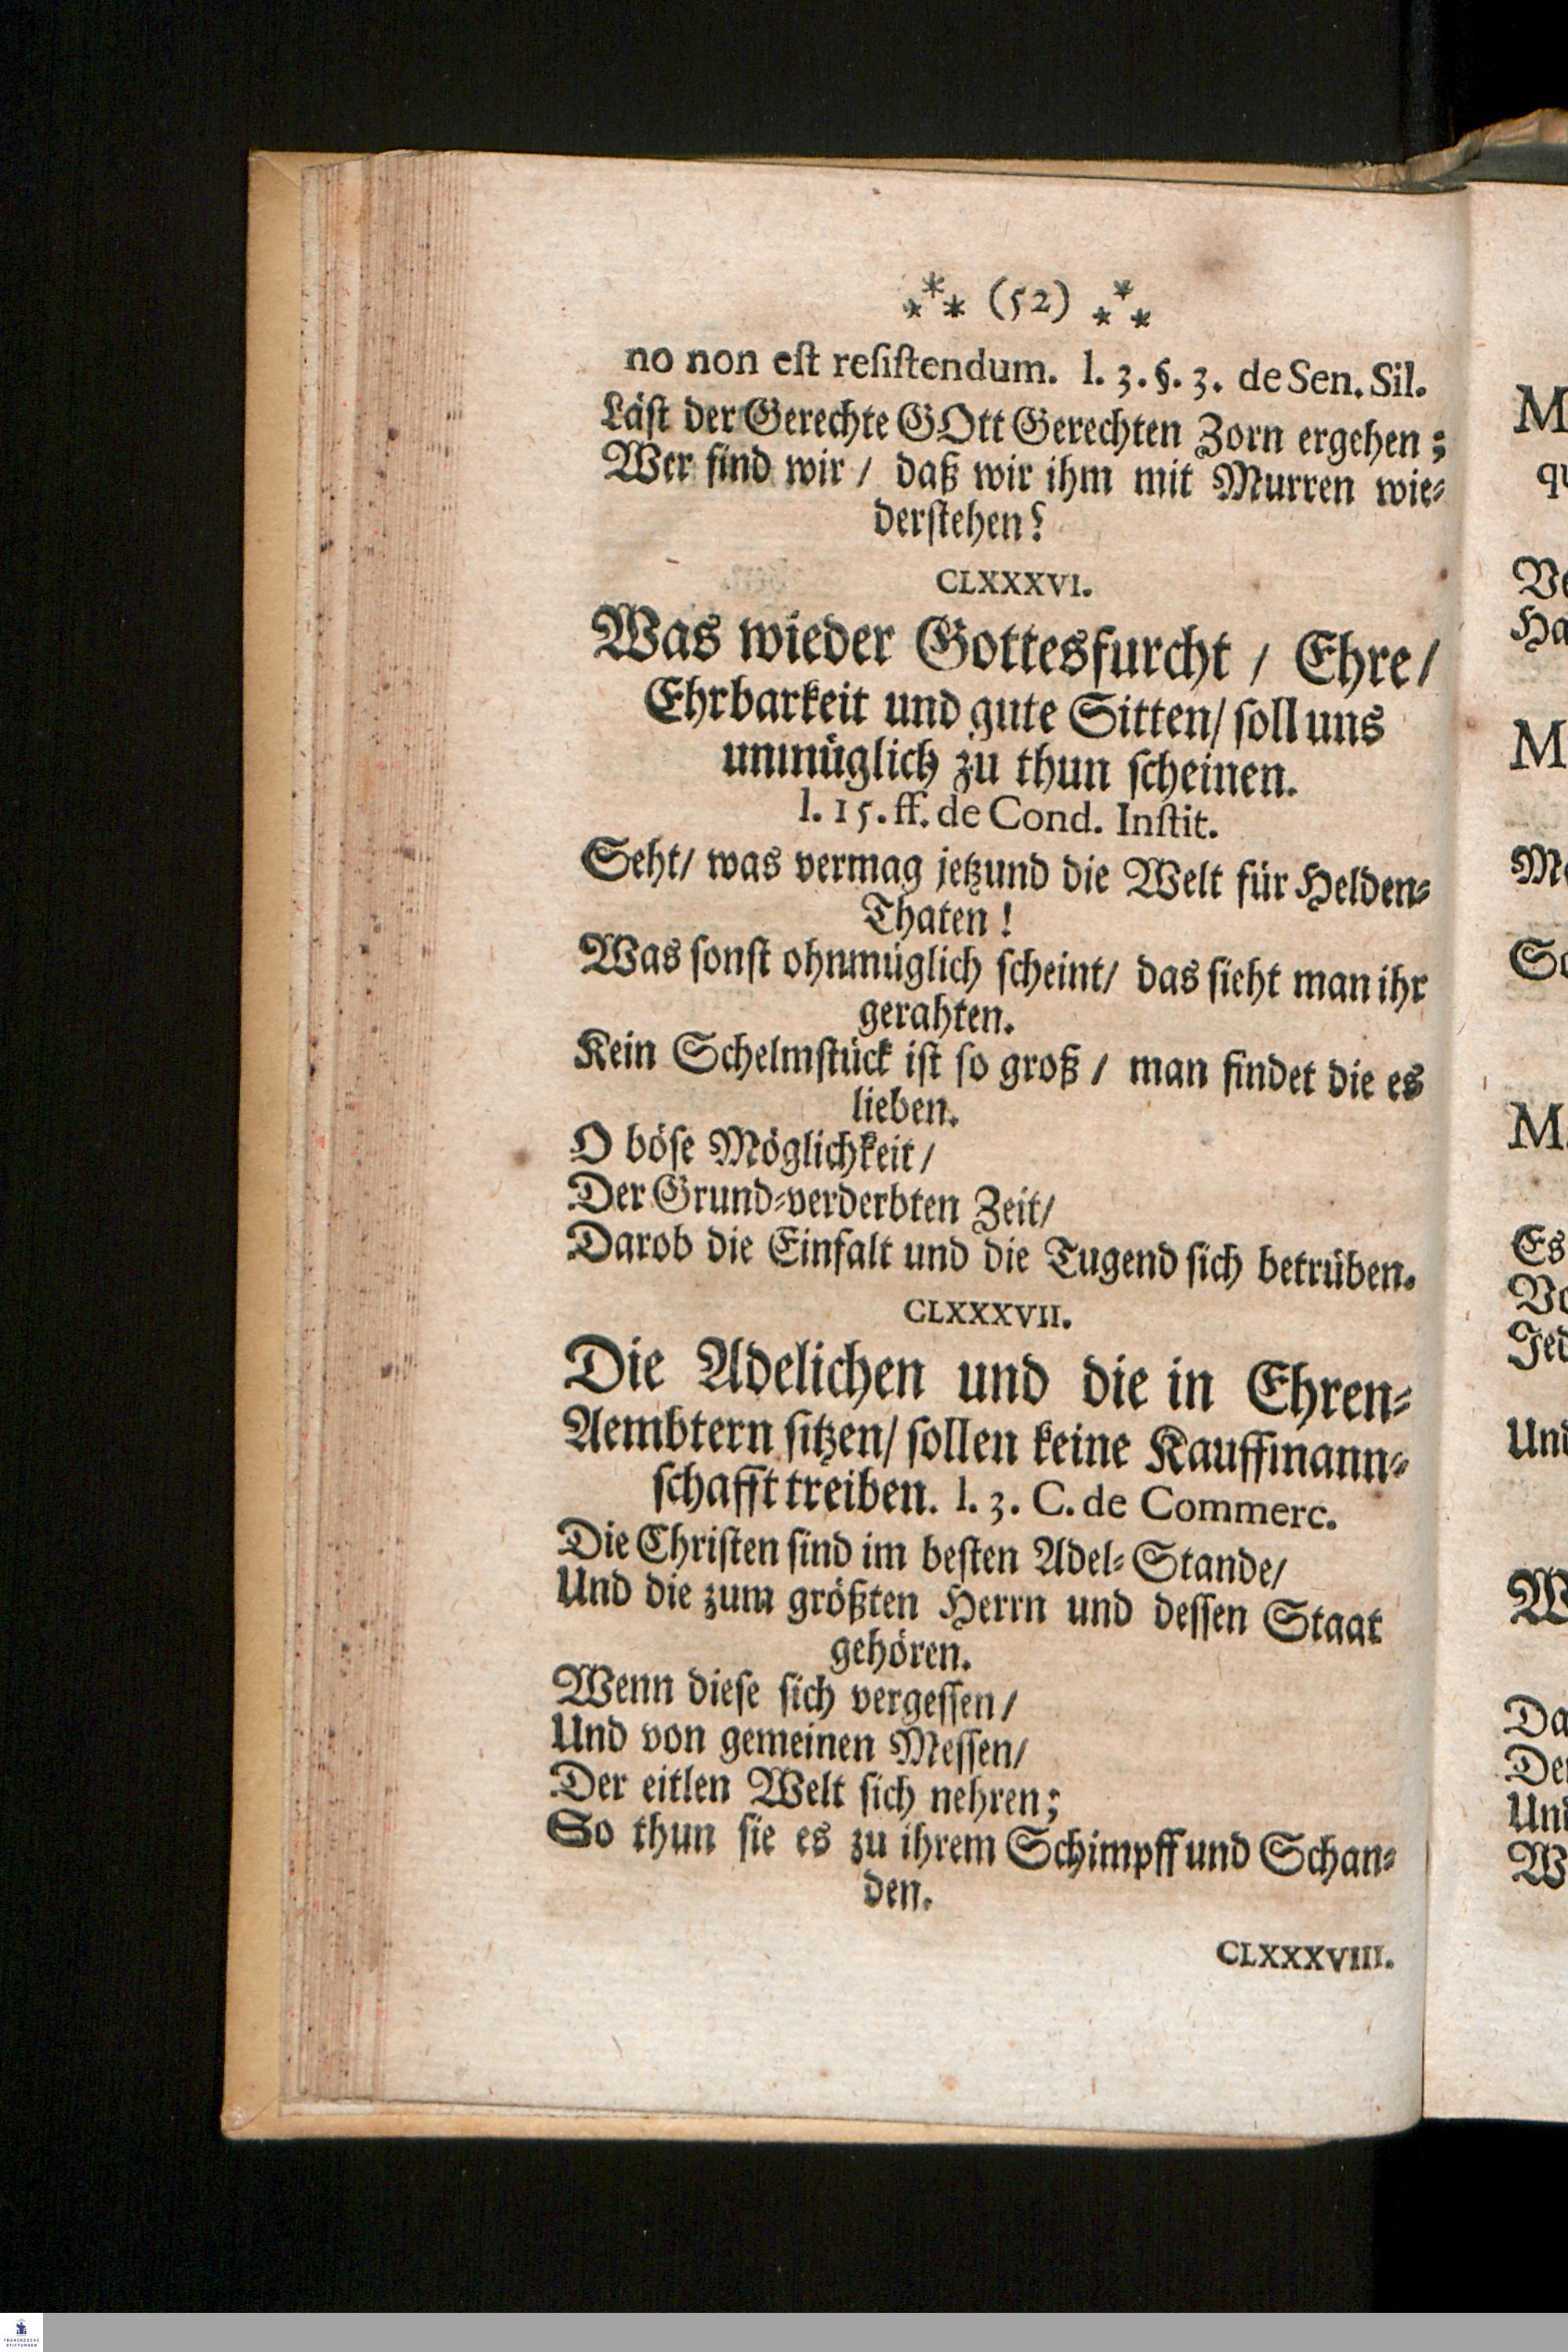 *** (52) ***
no non eſt reſiſtendum. l. 3. §. 3. de Sen. Sil.
Läſt der Gerechte GOtt Gerechten Zorn ergehen;
Wer ſind wir / daß wir ihm mit Murren wie⸗
derſtehen?
CLXXXVI.
Was wieder Gottesfurcht / Ehre /
Ehrbarkeit und gute Sitten / ſoll uns
unmüglich zu thun ſcheinen.
l. 15. ff. de Cond. Inſtit.
Seht / was vermag jetzund die Welt für Helden⸗
Thaten!
Was ſonſt ohnmüglich ſcheint / das ſieht man ihr
gerahten.
Kein Schelmſtück iſt ſo groß / man findet die es
lieben.
O böſe Möglichkeit /
Der Grund⸗verderbten Zeit /
Darob die Einfalt und die Tugend ſich betrüben.
CLXXXVII.
Die Adelichen und die in Ehren⸗
Aembtern ſitzen / ſollen keine Kauffmann⸗
ſchafft treiben. l. 3. C. de Commerc.
Die Chriſten ſind im beſten Adel⸗Stande /
Und die zum größten Herrn und deſſen Staat
gehören.
Wenn dieſe ſich vergeſſen /
Und von gemeinen Meſſen /
Der eitlen Welt ſich nehren;
So thun ſie es zu ihrem Schimpff und Schan⸗
den.
CLXXXVIII.
M
qu
Ve
Ha
M
Me
So
M
Es
Vo
Jed
Und
W
Da
Der
Und
W
FRANCKESCHE
STIFTUNGEN